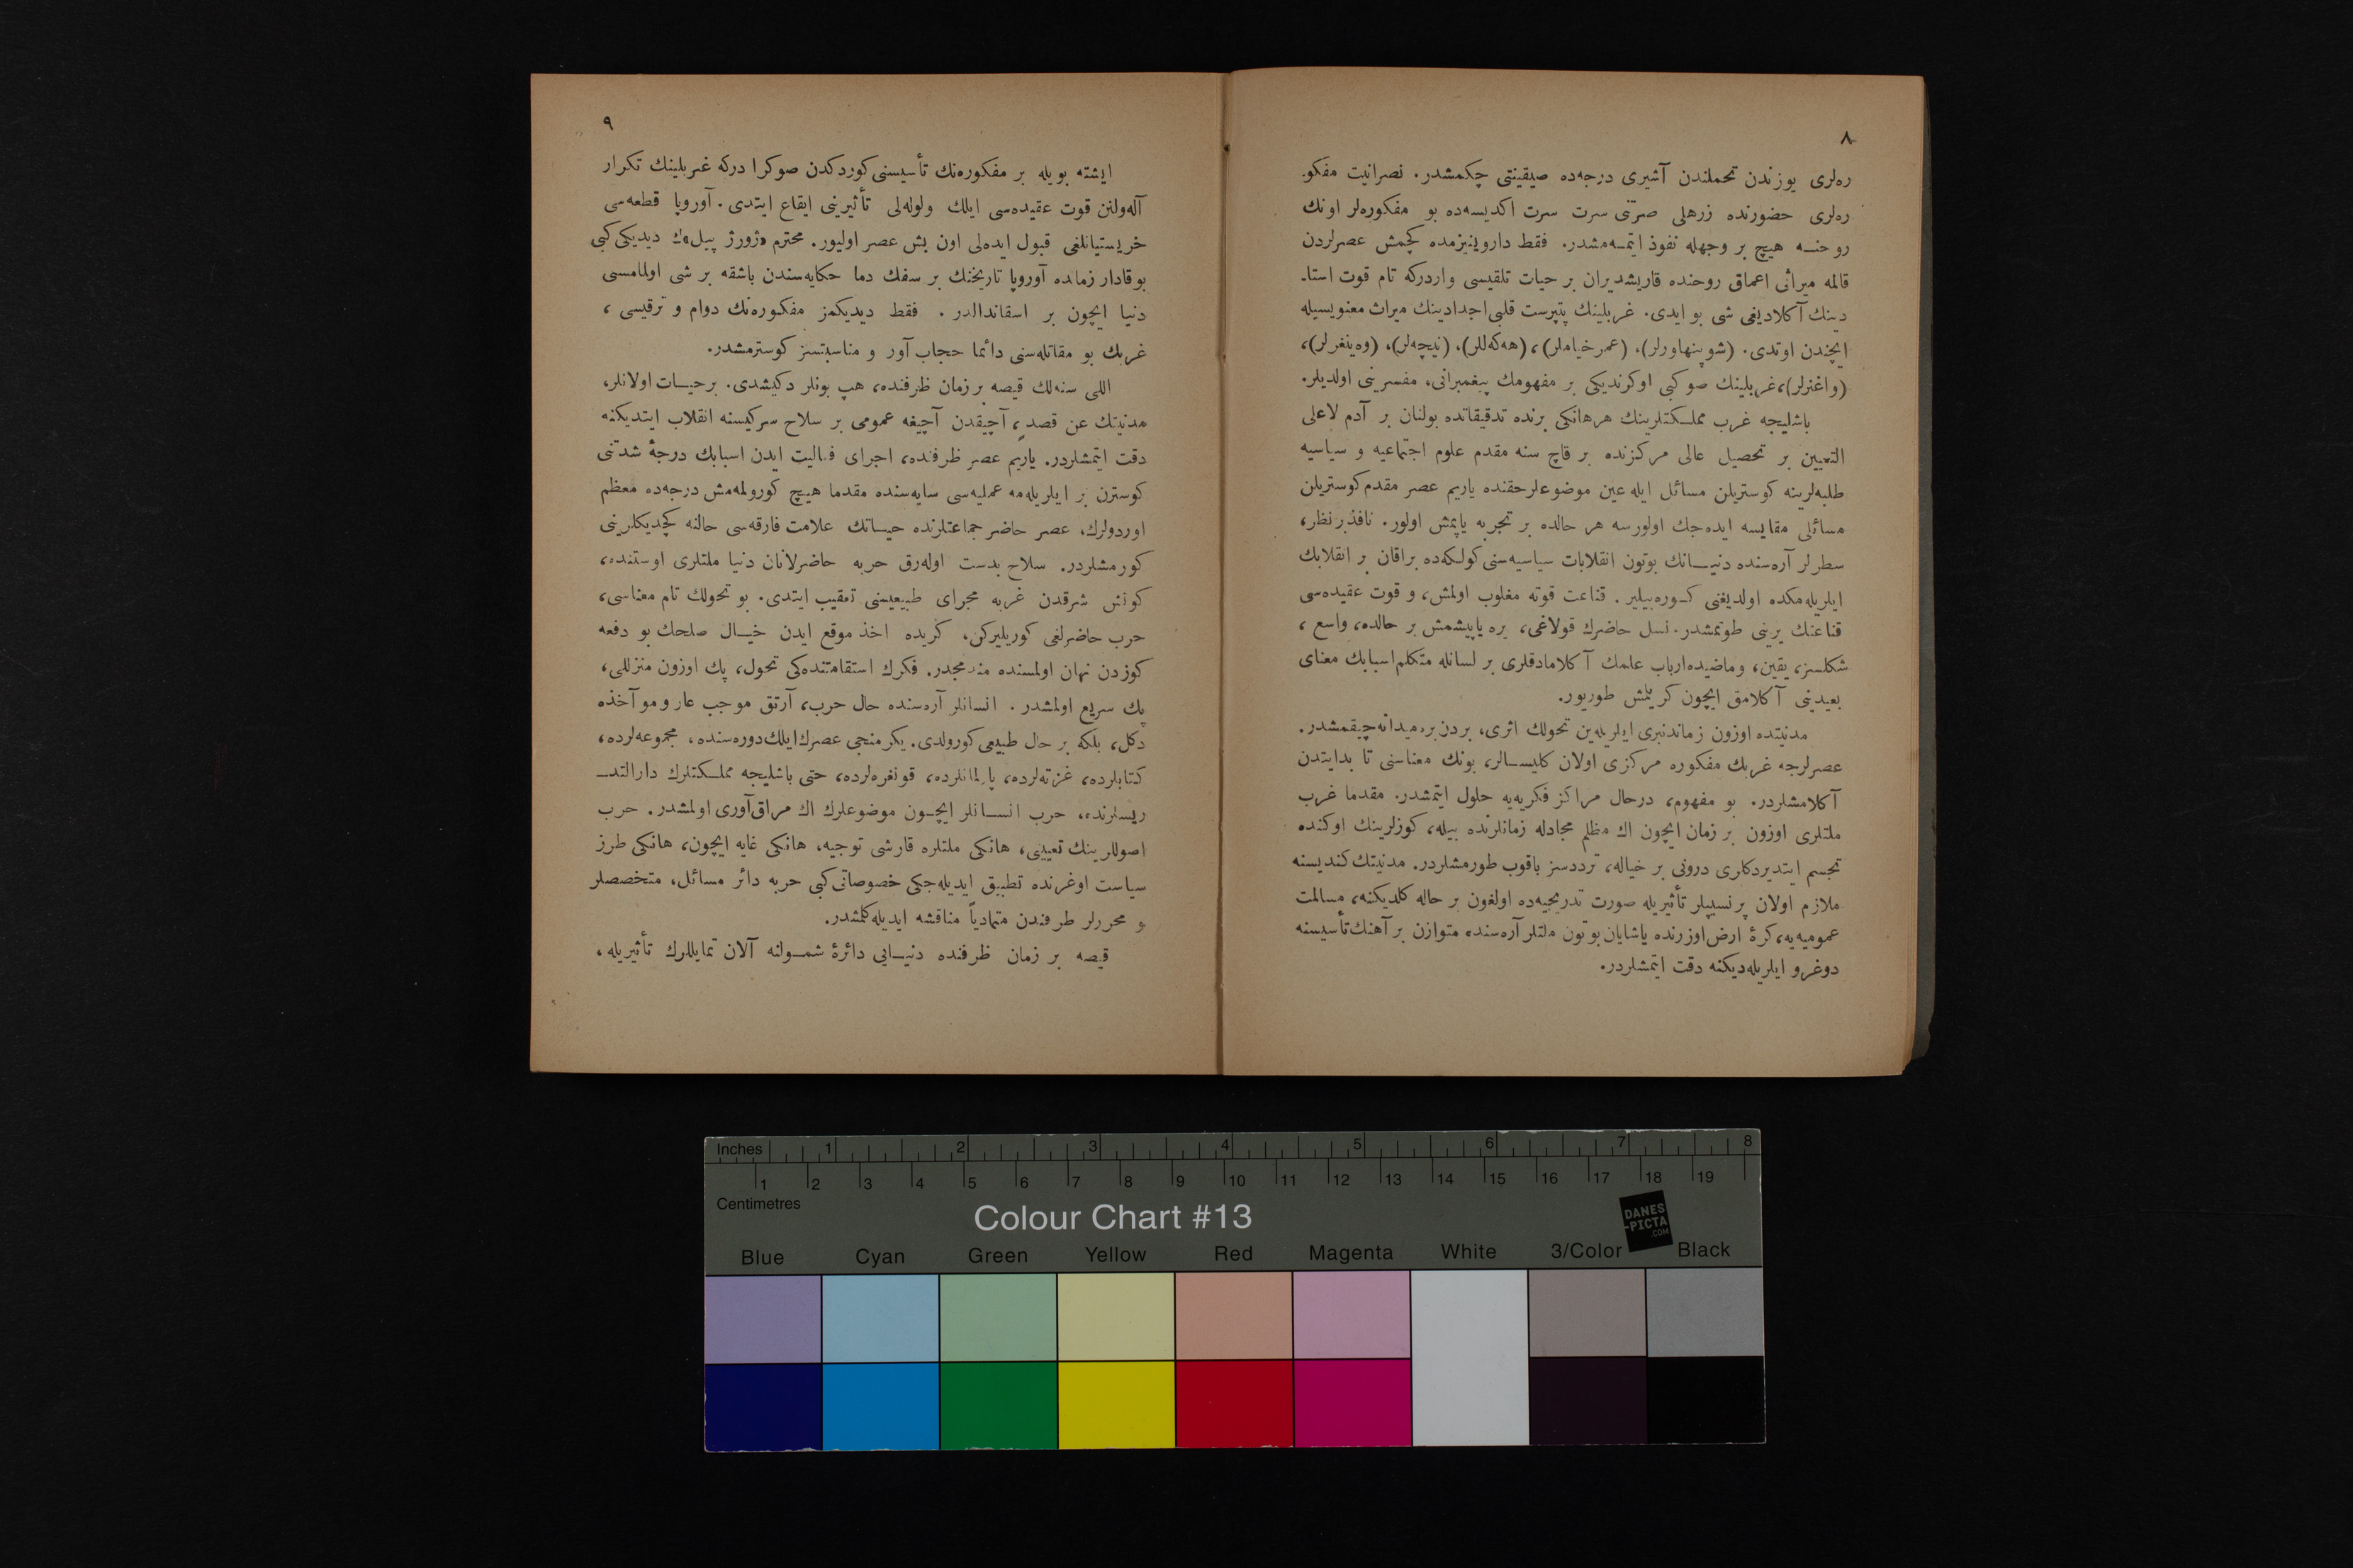 ٨
ره‌لری یوزندن تحملندن آشیری درجه‌ده صیقینتی چكمشدر. نصرانیت مفكو-
ره‌لری حضورنده زرهلی صرتنی سرت سرت اكدیسه‌ده بو مفكوره‌لر اونك
روحنـه هیچ بر وجهله نفوذ ایتمـه‌مشدر. فقط داروینیزمده كچمش عصرلردن
قالمه میراثی اعماق روحنده قاریشدیران بر حیات تلقیسی واردركه تام قوت استا-
دینك آكلادیغی شی بو ایدی. غربلینك پتپرست قلبی اجدادینك میراث معنویسیله
ایچندن اوتدی. (شوپنهاورلر)، (عمرخیاملر)، (هه‌كه‌للر)، (نیچه‌لر)، (وه‌ینغرلر)،
(واغنرلر)، غربلینك صوكبی اوكرندیكی بر مفهومك پیغمبرانی، مفسرینی اولدیلر.
باشلیجه غرب مملـكتلرینك هرهانكی برنده تدقیقاتده بولنان بر آدم لاعلی
التعیین بر تحصیل عالی مركزنده بر قاچ سنه مقدم علوم اجتماعیه و سیاسیه
طلبه‌لرینه كوستریلن مسائل ایله عین موضوعلرحقنده یاریم عصر مقدم كوستریلن
مسائلی مقایسه ایده‌جك اولورسه هر حالده بر تجربه یاپمش اولور. نافذ بر نظر،
سطرلر آره‌سنده دنیـانك بوتون انقلابات سیاسیه‌سنی كولكه‌ده براقان بر انقلابك
ایلریله‌مكده اولدیغنی كـوره‌بیلیر. قناعت قوته مغلوب اولمش، و قوت عقیده‌سی
قناعتك یرینی طوتمشدر. نسل حاضرك قولاغی، یره یاپیشمش بر حالده، واسع،
شكلسز، یقین، وماضیده ارباب علمك آكلامادقلری بر لسانله متكلم اسبابك معنای
بعیدینی آكلامق ایچون كریلمش طوریور.
مدنیتده اوزون زماندنبری ایلریله‌ین تحولك اثری، بردن بره میدانه چیقمشدر.
عصرلرجه غربك مفكوره مركزی اولان كلیسـالر، بونك معناسنی تا بدایتدن
آكلامشلردر. بو مفهوم، درحال مراكز فكریه‌یه حلول ایتمشدر. مقدما غرب
ملتلری اوزون بر زمان ایچون اك مظلم مجادله زمانلرنده بیله، كوزلرینك اوكنده
تجسم ایتدیردكلری درونی بر خیاله، ترددسز باقوب طورمشلردر. مدنیتك كندیسنه
ملازم اولان پرنسیپلر تأثیریله صورت تدریجیه‌ده اولغون بر حاله كلدیكنه، مسالمت
عمومیه‌یه، كرۀ ارض اوزرنده یاشایان بوتون ملتلر آره‌سنده متوازن بر آهنك تأسیسنه
دوغرو ایلریله‌دیكنه دقت ایتمشلردر.
٩
ایشته بویله بر مفكوره‌نك تأسیسنی كوردكدن صوكرا دركه غربلینك تكرار
آله‌ولنن قوت عقیده‌سی ایلك ولوله‌لی تأثیرینی ایقاع ایتدی. آوروپا قطعه‌سی
خریستیانلغی قبول ایده‌لی اون بش عصر اولیور. محترم «ژورژ پیل»ك دیدیكی كبی
بوقادار زمانده آوروپا تاریخنك بر سفك دما حكایه‌سندن باشقه بر شی اولمامسی
دنیا ایچون بر اسقاندالدر. فقط دیدیكمز مفكوره‌نك دوام و ترقیسی،
غربك بو مقاتله‌سنی دائما حجاب آور و مناسبتسز كوسترمشدر.
اللی سنه‌لك قیصه بر زمان ظرفنده، هپ بونلر دكیشدی. برحیـات اولانلر،
مدنیتك عن قصدٍ، آچیقدن آچیغه عمومی بر سلاح سركیسنه انقلاب ایتدیكنه
دقت ایتمشلردر. یاریم عصر ظرفنده، اجرای فعالیت ایدن اسبابك درجۀ شدتنی
كوسترن بر ایلریله‌مه عملیه‌سی سایه‌سنده مقدما هیچ كورولمه‌مش درجه‌ده معظم
اوردولرك، عصر حاضر جماعتلرنده حیـاتك علامت فارقه‌سی حالنه كچدیكلرینی
كورمشلردر. سلاح بدست اوله‌رق حربه حاضرلانان دنیا ملتلری اوستنده،
كونش شرقدن غربه مجرای طبیعیسنی تعقیب ایتدی. بو تحولك تام معناسی،
حرب حاضرلغی كوریلیركن، كریده اخذ موقع ایدن خیـال صلحك بو دفعه
كوزدن نهان اولمسنده مندمجدر. فكرك استقامتنده‌كی تحول، پك اوزون منزللی،
پك سریع اولمشدر. انسانلر آره‌سنده حال حرب، آرتق موجب عار و موآخذه
دكل، بلكه بر حال طبیعی كورولدی. یكرمنجی عصرك ایلك دوره‌سنده، مجموعه‌لرده،
كتابلرده، غزته‌لرده، پارلمانلرده، قونغره‌لرده، حتی باشلیجه مملـكتلرك دارالتد-
ریسلرنده، حرب انسـانلر ایچـون موضوعلرك اك مراق‌آوری اولمشدر. حرب
اصوللرینك تعیینی، هانكی ملتلره قارشی توجیه، هانكی غایه ایچون، هانكی طرز
سیاست اوغرنده تطبیق ایدیله‌جكی خصوصاتی كبی حربه دائر مسائل، متخصصلر
و محررلر طرفندن متمادیاً مناقشه ایدیله‌كلمشدر.
قیصه بر زمان ظرفنده دنیـایی دائرۀ شمـولنه آلان تمایللرك تأثیریله،
Inches 1 2 3 4 5 6 7 8
1 2 3 4 5 6 7 8 9 10 11 12 13 14 15 16 17 18 19
Centimetres
Colour Chart #13
DANES
-PICTA
.COM
Blue Cyan Green Yellow Red Magenta White 3/Color Black